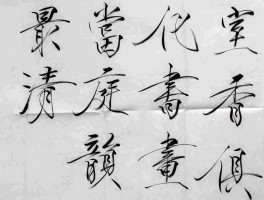 室香俱
化書畫
當庭韻
最清